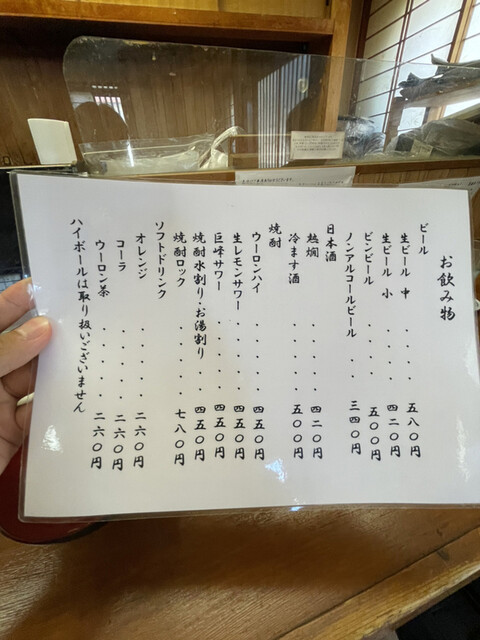 お飲み物
ビール
生ビール 中 ・・・・ 五八〇円
生ビール 小 ・・・・ 四二〇円
ビンビール ・・・・ 五〇〇円
ノンアルコールビール ・・ 三四〇円
日本酒
熱燗 ・・・・ 四二〇円
冷ます酒 ・・・・ 五〇〇円
焼酎
ウーロンハイ ・・・・ 四五〇円
生レモンサワー ・・・・ 四五〇円
巨峰サワー ・・・・ 四五〇円
焼酎水割り・お湯割り ・・ 四五〇円
焼酎ロック ・・・・ 七八〇円
ソフトドリンク
オレンジ ・・・・ 二六〇円
コーラ ・・・・ 二六〇円
ウーロン茶 ・・・・ 二六〇円
ハイボールは取り扱いございません